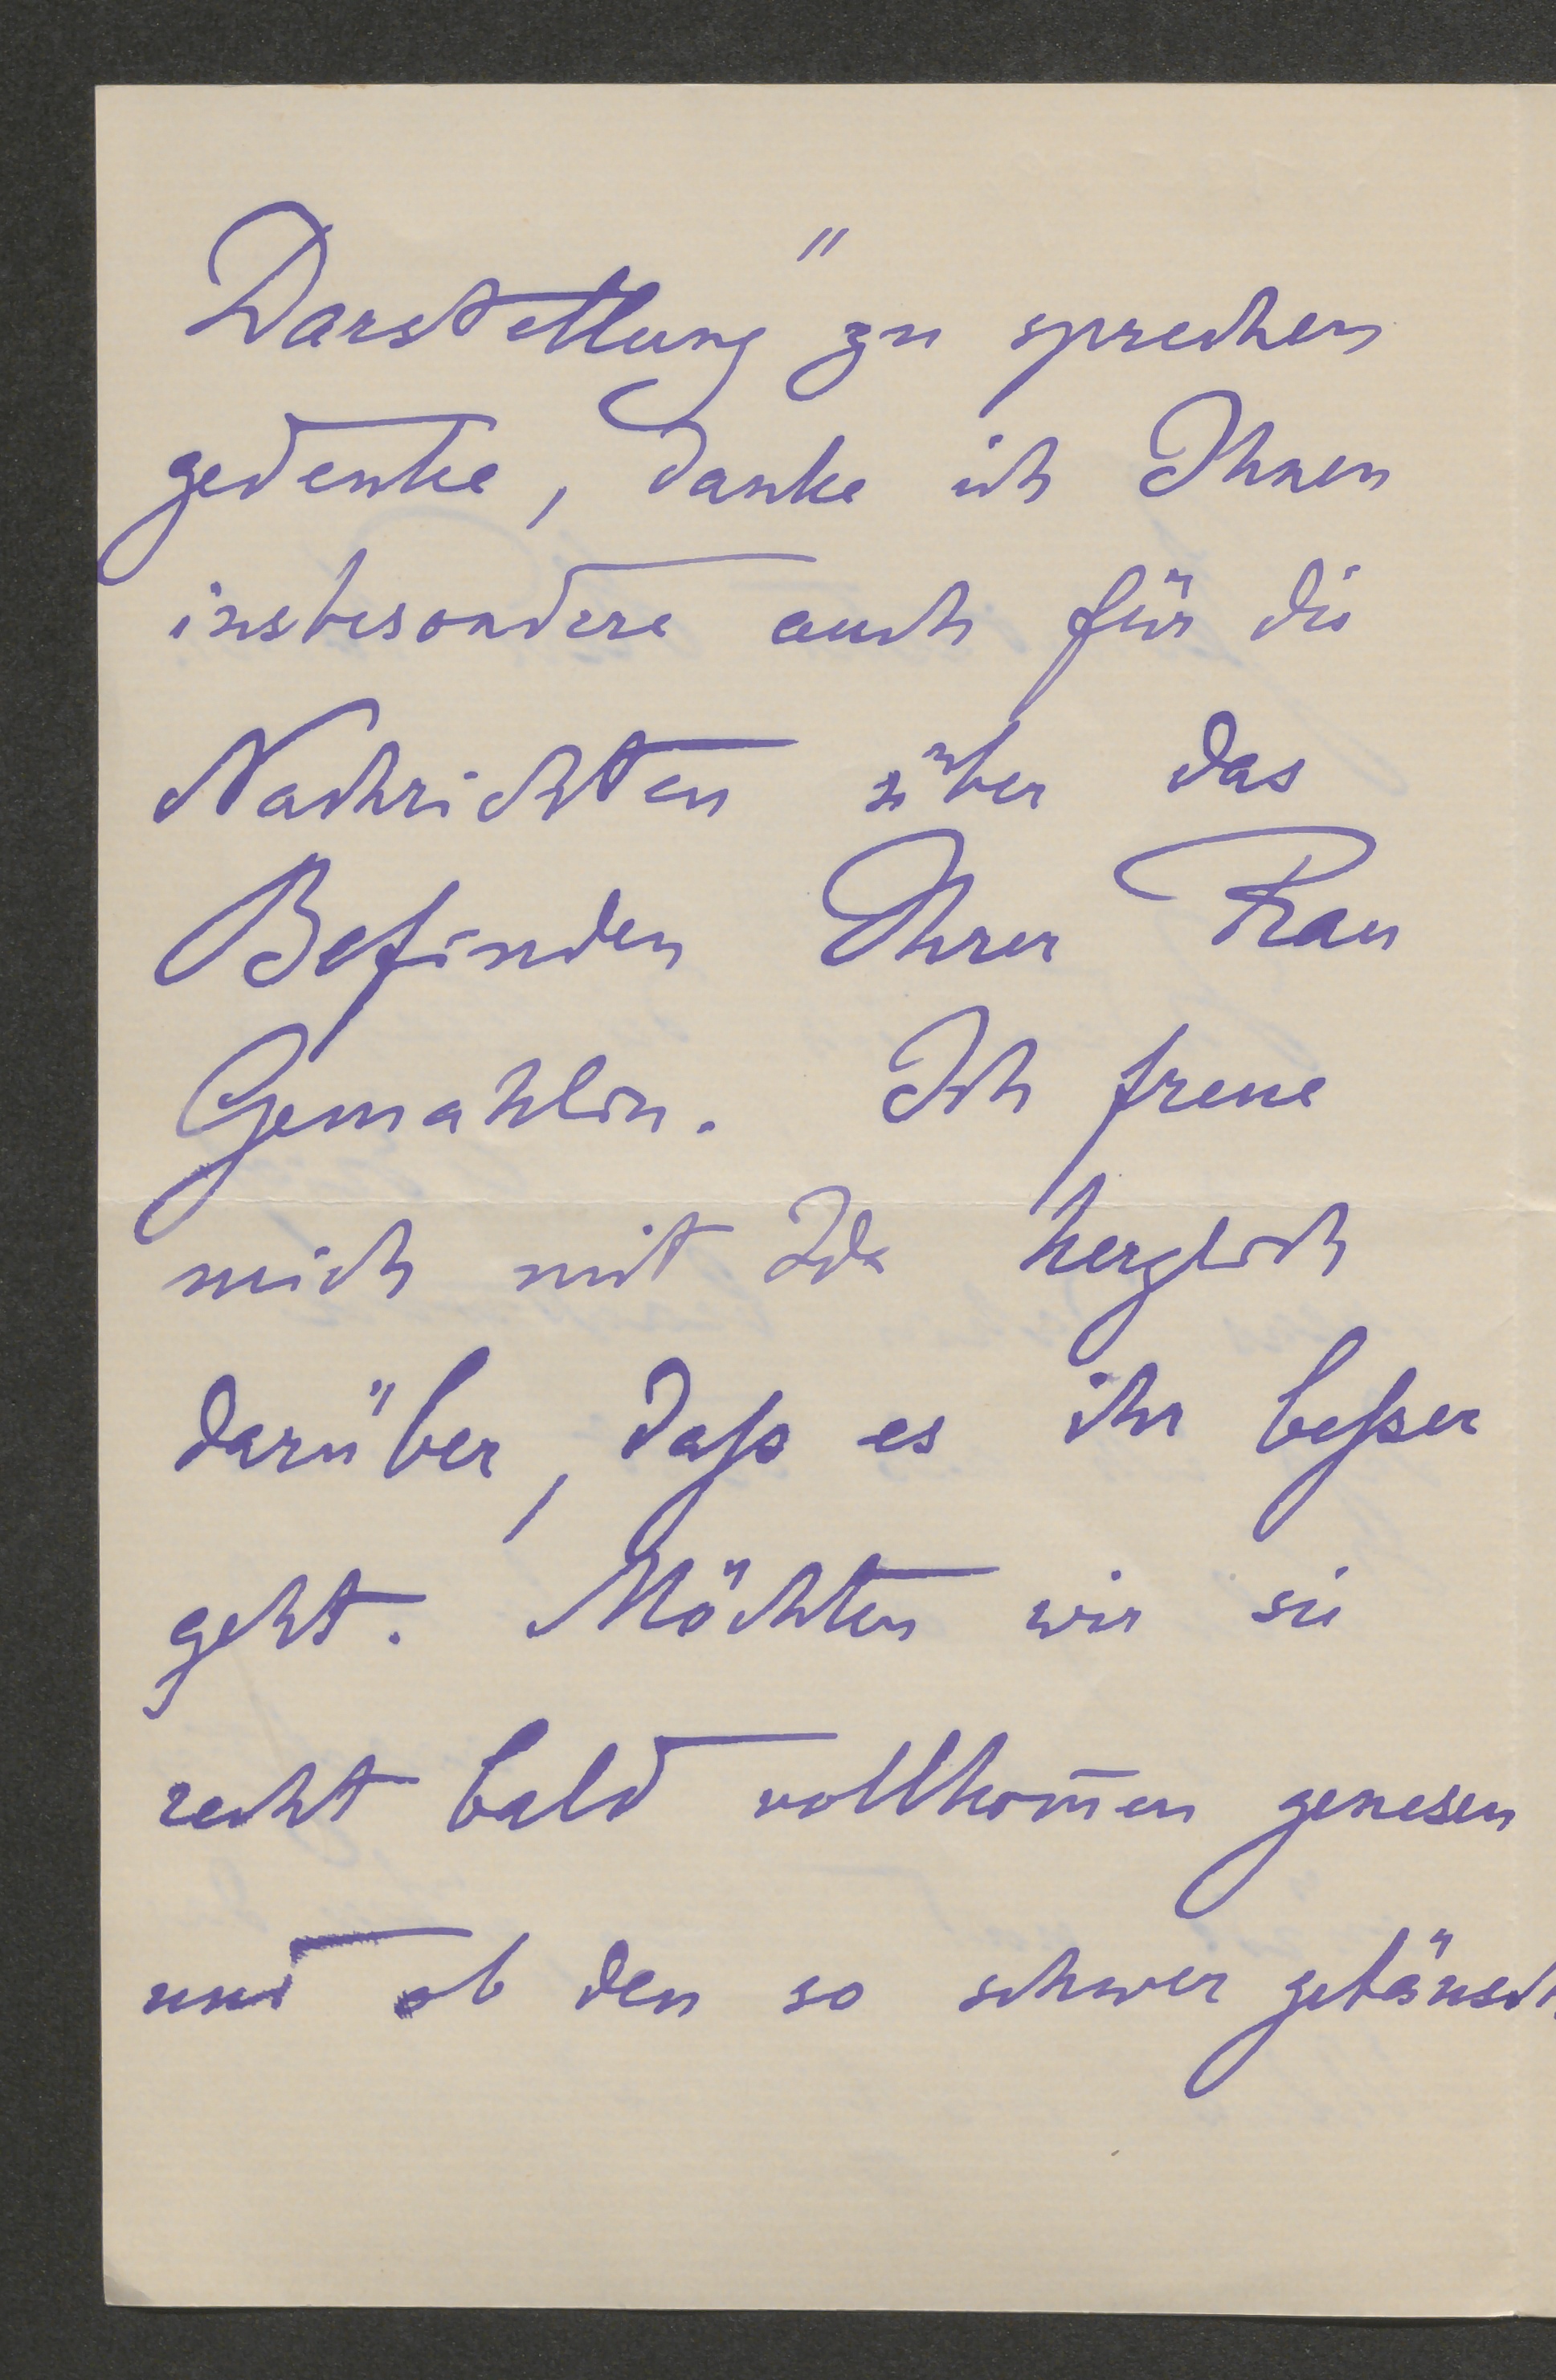 Darstellung" zu sprechen
gedenke, danke ich Ihnen
insbesondere auch für die
Nachrichten über das
Befinden Ihrer Frau
Gemahlin. Ich freue
mich mit Ida herzlich
darüber, daß es ihr beßer
geht. Möchten wir sie
recht bald vollkom̅en genesen
und ob den so schwer getäusch